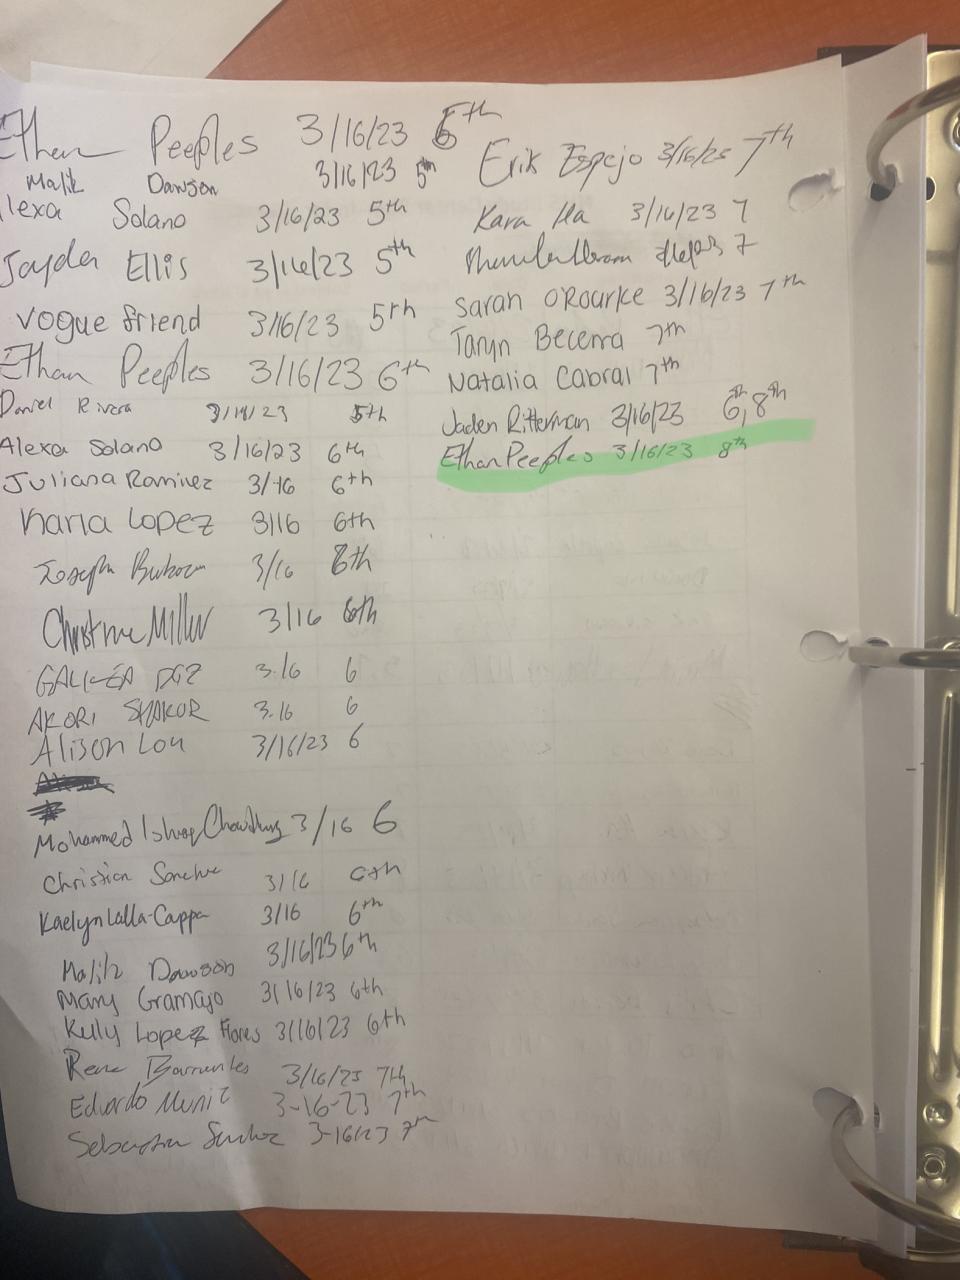 Ethan Peeples 3/16/23 5th
Malik Dawson 3/16/23 5th
lexa Solano 3/16/23 5th
Jayden Ellis 3/16/23 5th
Vogue friend 3/16/23 5th
Ethan Peeples 3/16/23 6th
Daniel Rivera 3/16/23 5th
Alexa Solano 3/16/23 6th
Juliana Ramirez 3/16 6th
Karla Lopez 3/16 6th
Joseph 3/16 6th
Christine Miller 3/16 6th
3.16 6
AKORI SHAKUR 3.16 6
Alison Lou 3/16/23 6
Mohammed Chowdhury 3/16 6
Christian 3/16 6th
Kaelyn Lalla-Cappa 3/16 6th
Malik Dawson 3/16/23 6th
Mary Gramajo 3/16/23 6th
Kelly Lopez Flores 3/16/23 6th
Rene Barrientes 3/16/23 7th
Eduardo Muniz 3-16-23 7th
Sebastian 3-16/23 7th
Erik Espejo 3/16/23 7th
Kara Ha 3/16/23 7
7
Sarah O'Rourke 3/16/23 7th
Taryn Becerra 7th
Natalia Cabral 7th
Jaden Ritterman 3/16/23 6th, 8th
Ethan Peeples 3/16/23 8th